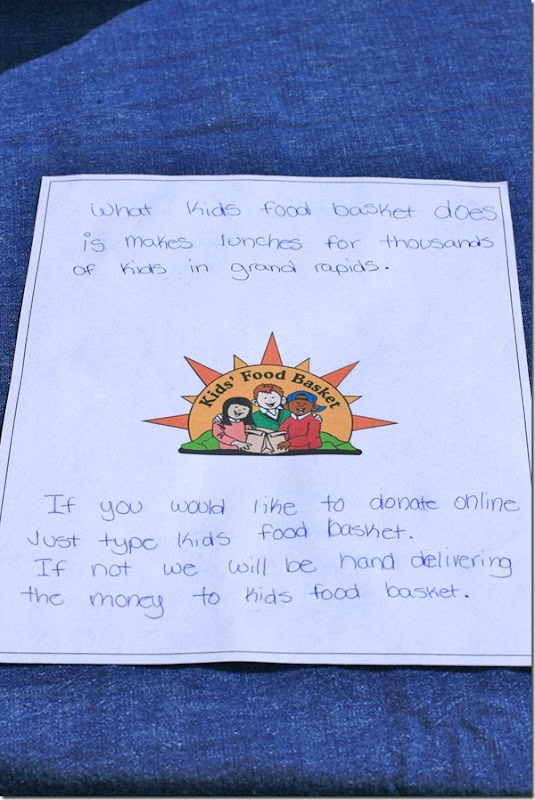 What kids food basket does
is makes lunches for thousands
of kids in grand rapids.
Kids' Food Basket
If you would like to donate online
Just type kids food basket.
If not we will be hand delivering
the money to kids food basket.